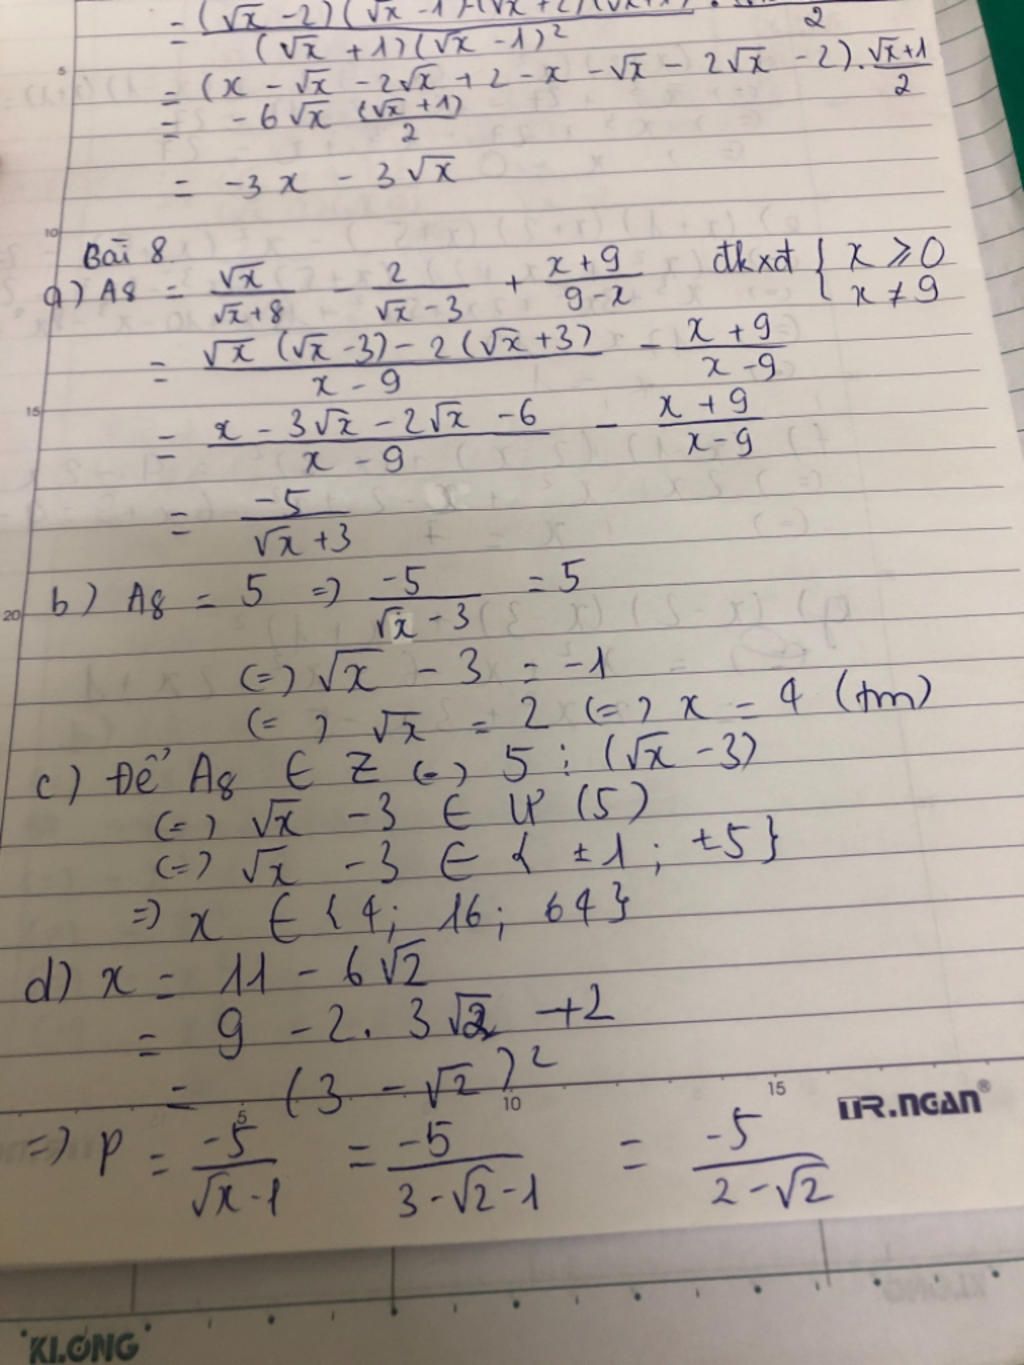 = (√x - 2)(√x - 1) - (√x + 2)(√x+1) / (√x + 1)(√x - 1)² · / 2
= (x - √x - 2√x + 2 - x - √x - 2√x - 2) · (√x+1)/2
= -6√x (√x + 1)/2
= -3x - 3√x
Bài 8
a) A8 = √x/(√x+8) - 2/(√x - 3) + (x + 9)/(9 - x) đkxđ { x ⩾ 0
x ≠ 9
= (√x (√x - 3) - 2(√x + 3))/(x - 9) - (x + 9)/(x - 9)
= (x - 3√x - 2√x - 6)/(x - 9) - (x + 9)/(x - 9)
= -5/(√x + 3)
b) A8 = 5 => -5/(√x - 3) = 5
(=) √x - 3 = -1
(=) √x = 2 (=) x = 4 (tm)
c) Để A8 ∈ Z (=) 5 ⋮ (√x - 3)
(=) √x - 3 ∈ Ư (5)
(=) √x - 3 ∈ { ±1 ; ±5 }
=> x ∈ { 4 ; 16 ; 64 }
d) x = 11 - 6√2
= 9 - 2 . 3√2 + 2
= (3 - √2)²
5 10 15 TR.NGAN®
=> P = -5/(√x - 1) = -5/(3 - √2 - 1) = -5/(2 - √2)
KLONG